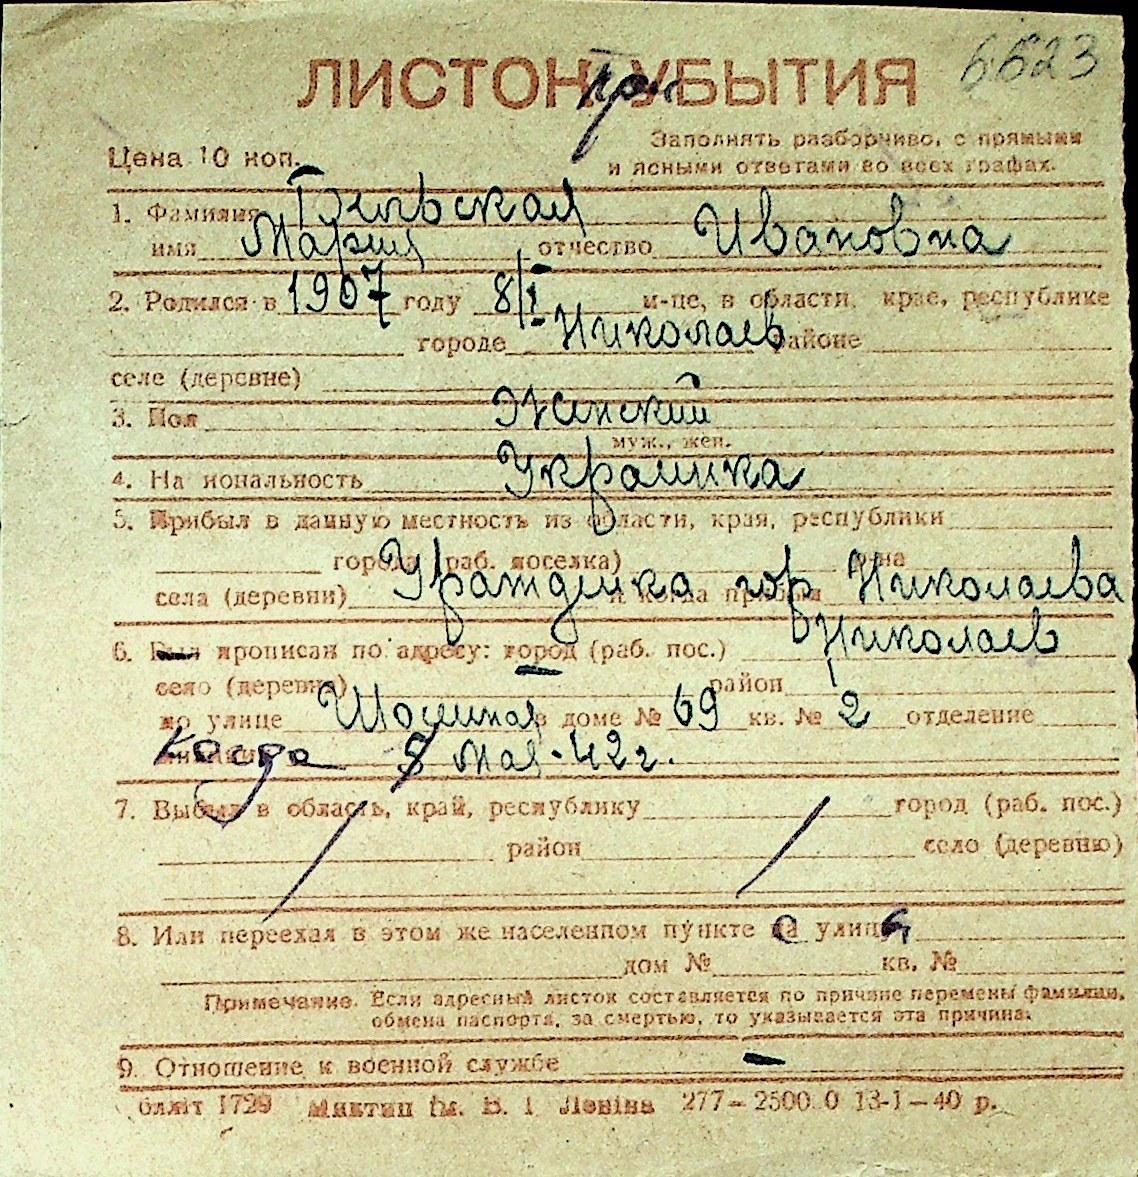 6623
ЛИСТОК при УБЫТИЯ
Цена 10 коп.
Заполнять разборчиво, с прямыми
и ясными ответами во всех графах.
1. Фамилия
имя Мария отчество Ивановна
2. Родился в 1907 году 8/I м-це, в области, крае, республике
городе Николаев районе
селе (деревне)
3. Пол Женский
муж., жен.
4. Национальность Украинка
5. Прибыл в данную местность из области, края, республики
города (раб. поселка) р-на
села (деревни) Уражденка гор Николаева и когда прибыл
6. Был прописан по адресу: город (раб. пос.) Николаев
село (деревня) район
по улице в доме № 69 кв. № 2 отделение
милиции когда 8 мая - 42 г.
7. Выбыл в область, край, республику город (раб. пос.)
район село (деревню)
8. Или переехал в этом же населенном пункте с улицы
дом № кв. №
Примечание. Если адресный листок составляется по причине перемены фамилии,
обмена паспорта, за смертью, то указывается эта причина.
9. Отношение к военной службе —
1729 ім. В. І. Леніна 277—2500.0 13-1—40 р.